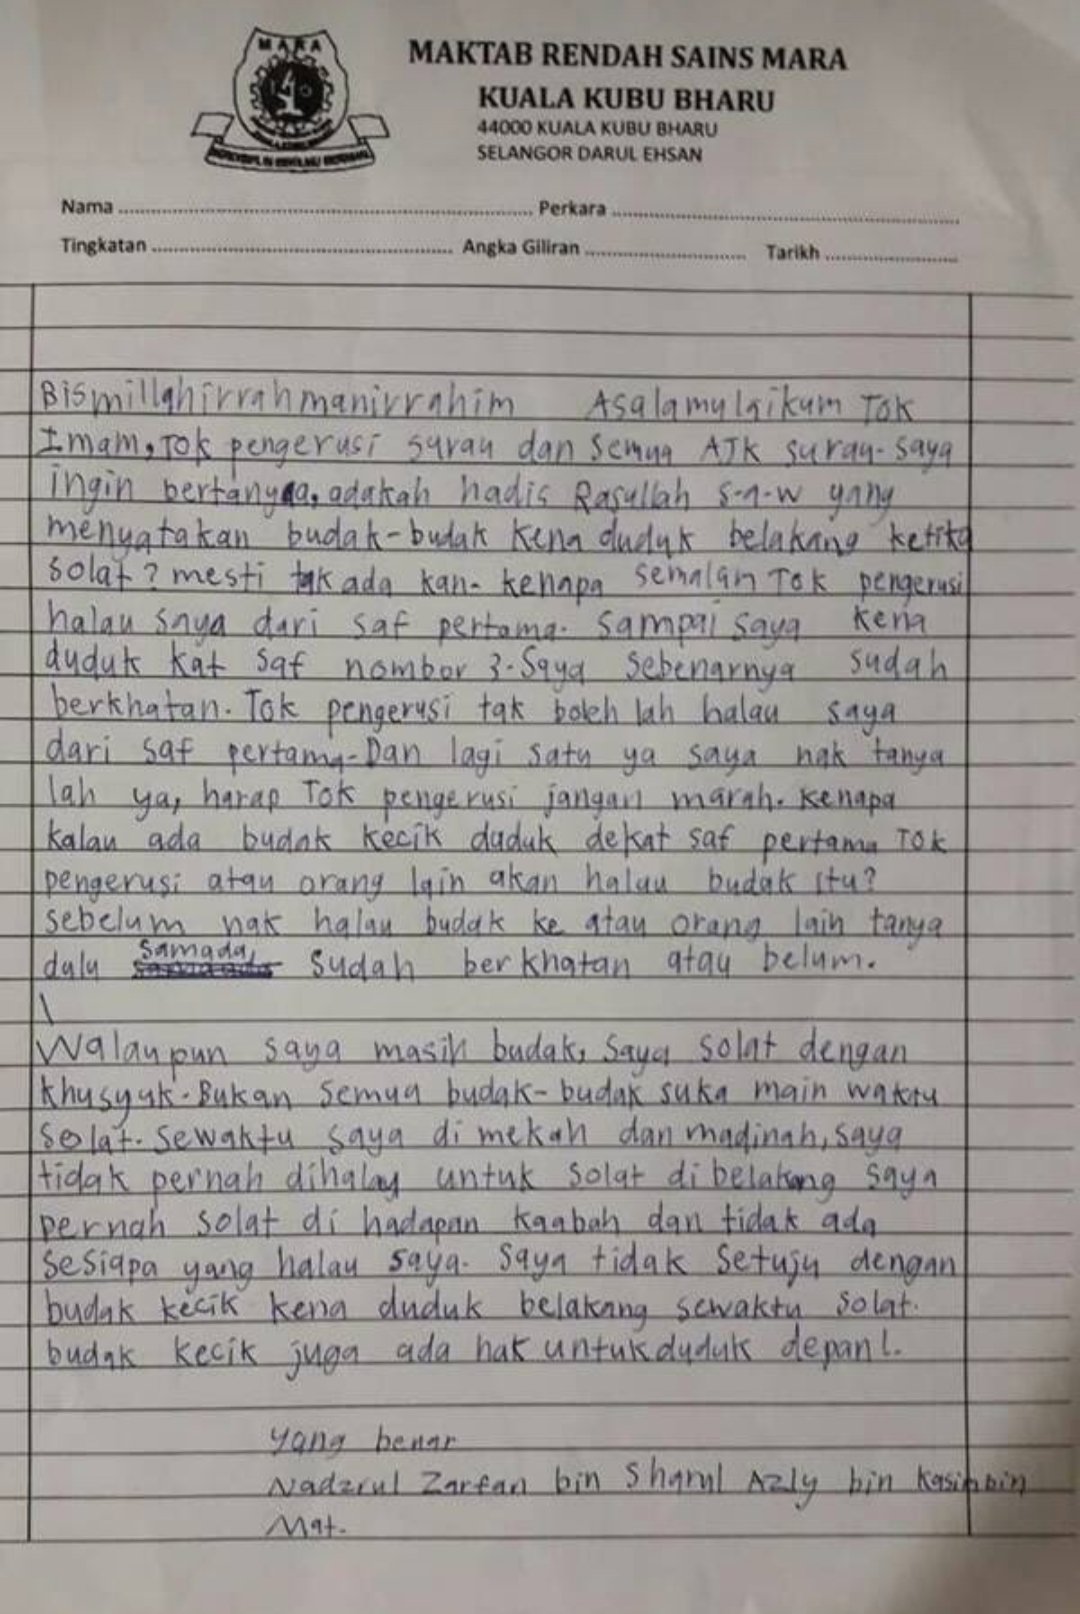 MARA
MAKTAB RENDAH SAINS MARA
KUALA KUBU BHARU
44000 KUALA KUBU BHARU
SELANGOR DARUL EHSAN
Nama ........ Perkara ........
Tingkatan ........ Angka Giliran ........ Tarikh ........
Bismillahirrahmanirrahim Asalamulaikum Tok
Imam, Tok pengerusi surau dan semua AJK surau. saya
ingin bertanya, adakah hadis Rasullah s.a.w yang
menyatakan budak-budak kena duduk belakang ketika
solat? mesti tak ada kan. kenapa semalam Tok pengerusi
halau saya dari saf pertama. sampai saya kena
duduk kat saf nombor 3. Saya sebenarnya sudah
berkhatan. Tok pengerusi tak boleh lah halau saya
dari saf pertama. Dan lagi satu ya saya nak tanya
lah ya, harap Tok pengerusi jangan marah. kenapa
kalau ada budak kecik duduk dekat saf pertama Tok
pengerusi atau orang lain akan halau budak itu?
sebelum nak halau budak ke atau orang lain tanya
dulu samada, sudah berkhatan atau belum.
Walaupun saya masih budak, saya solat dengan
khusyuk. Bukan semua budak-budak suka main waktu
solat. sewaktu saya di mekah dan madinah, saya
tidak pernah dihalau untuk solat di belakang saya
pernah solat di hadapan kaabah dan tidak ada
sesiapa yang halau saya. saya tidak setuju dengan
budak kecik kena duduk belakang sewaktu solat.
budak kecik juga ada hak untuk duduk depan!.
yang benar
Nadzrul Zarfan bin Sharul Azly bin Kasim bin
Mat.